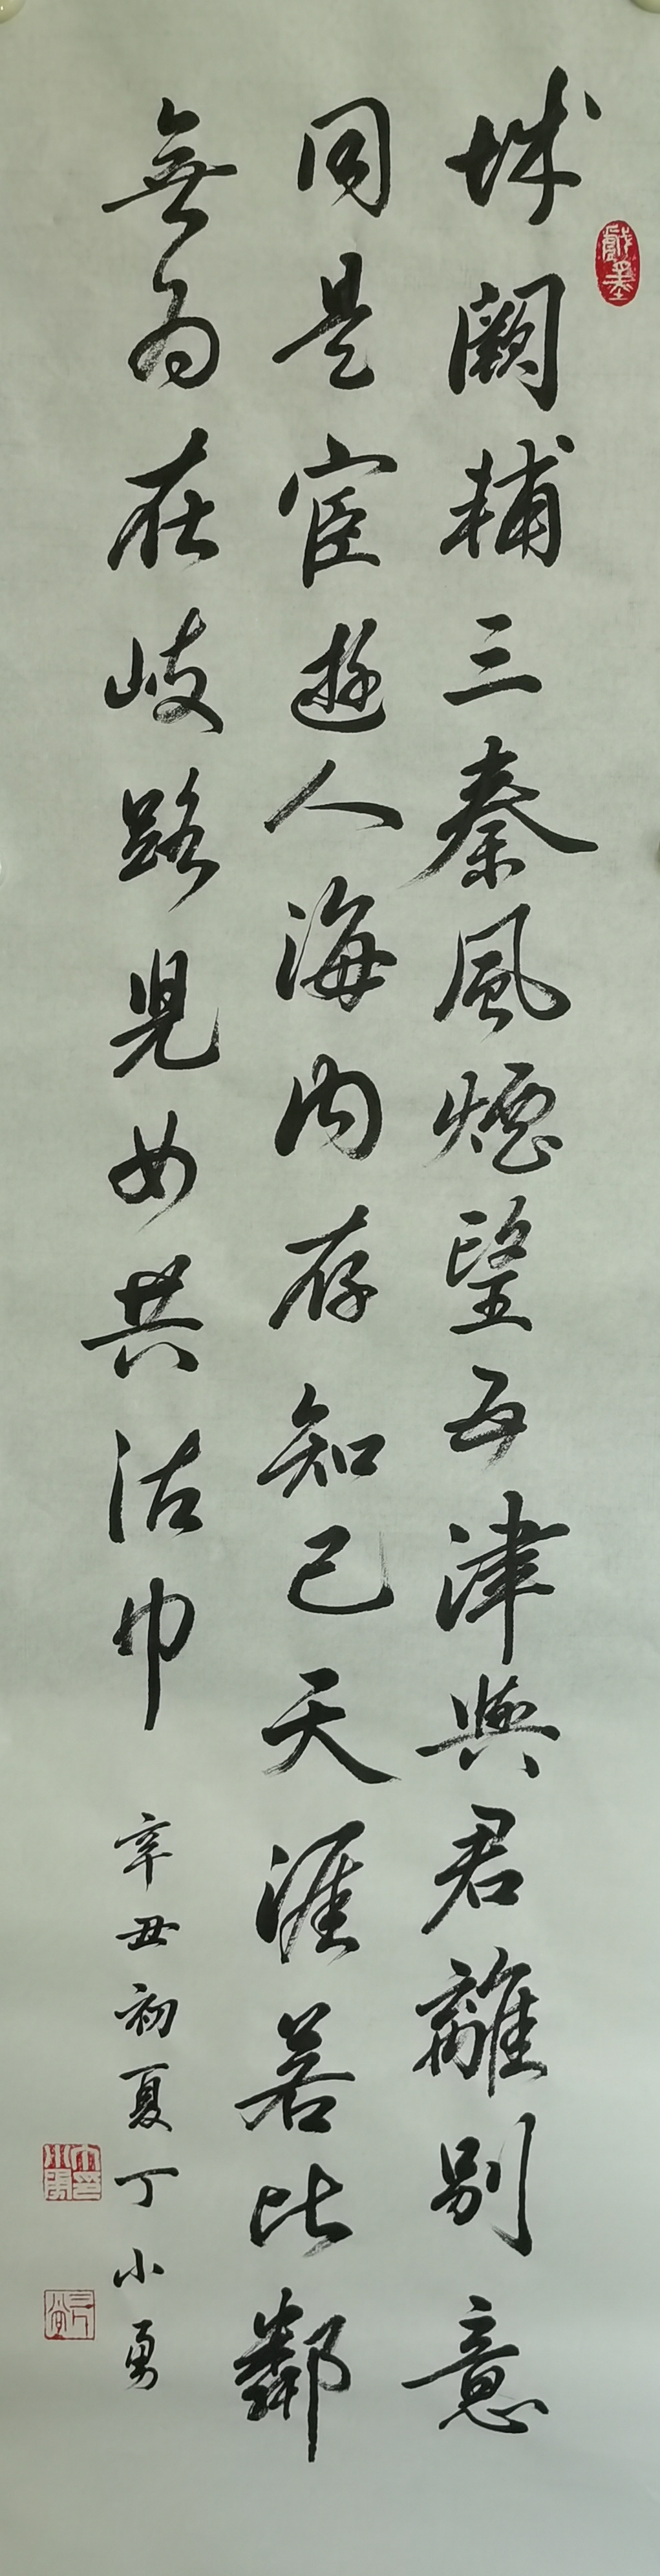 城闕輔三秦風煙望五津與君離別意
同是宦遊人海内存知己天涯若比鄰
無為在岐路児女共沾巾
辛丑初夏丁小勇
戲墨